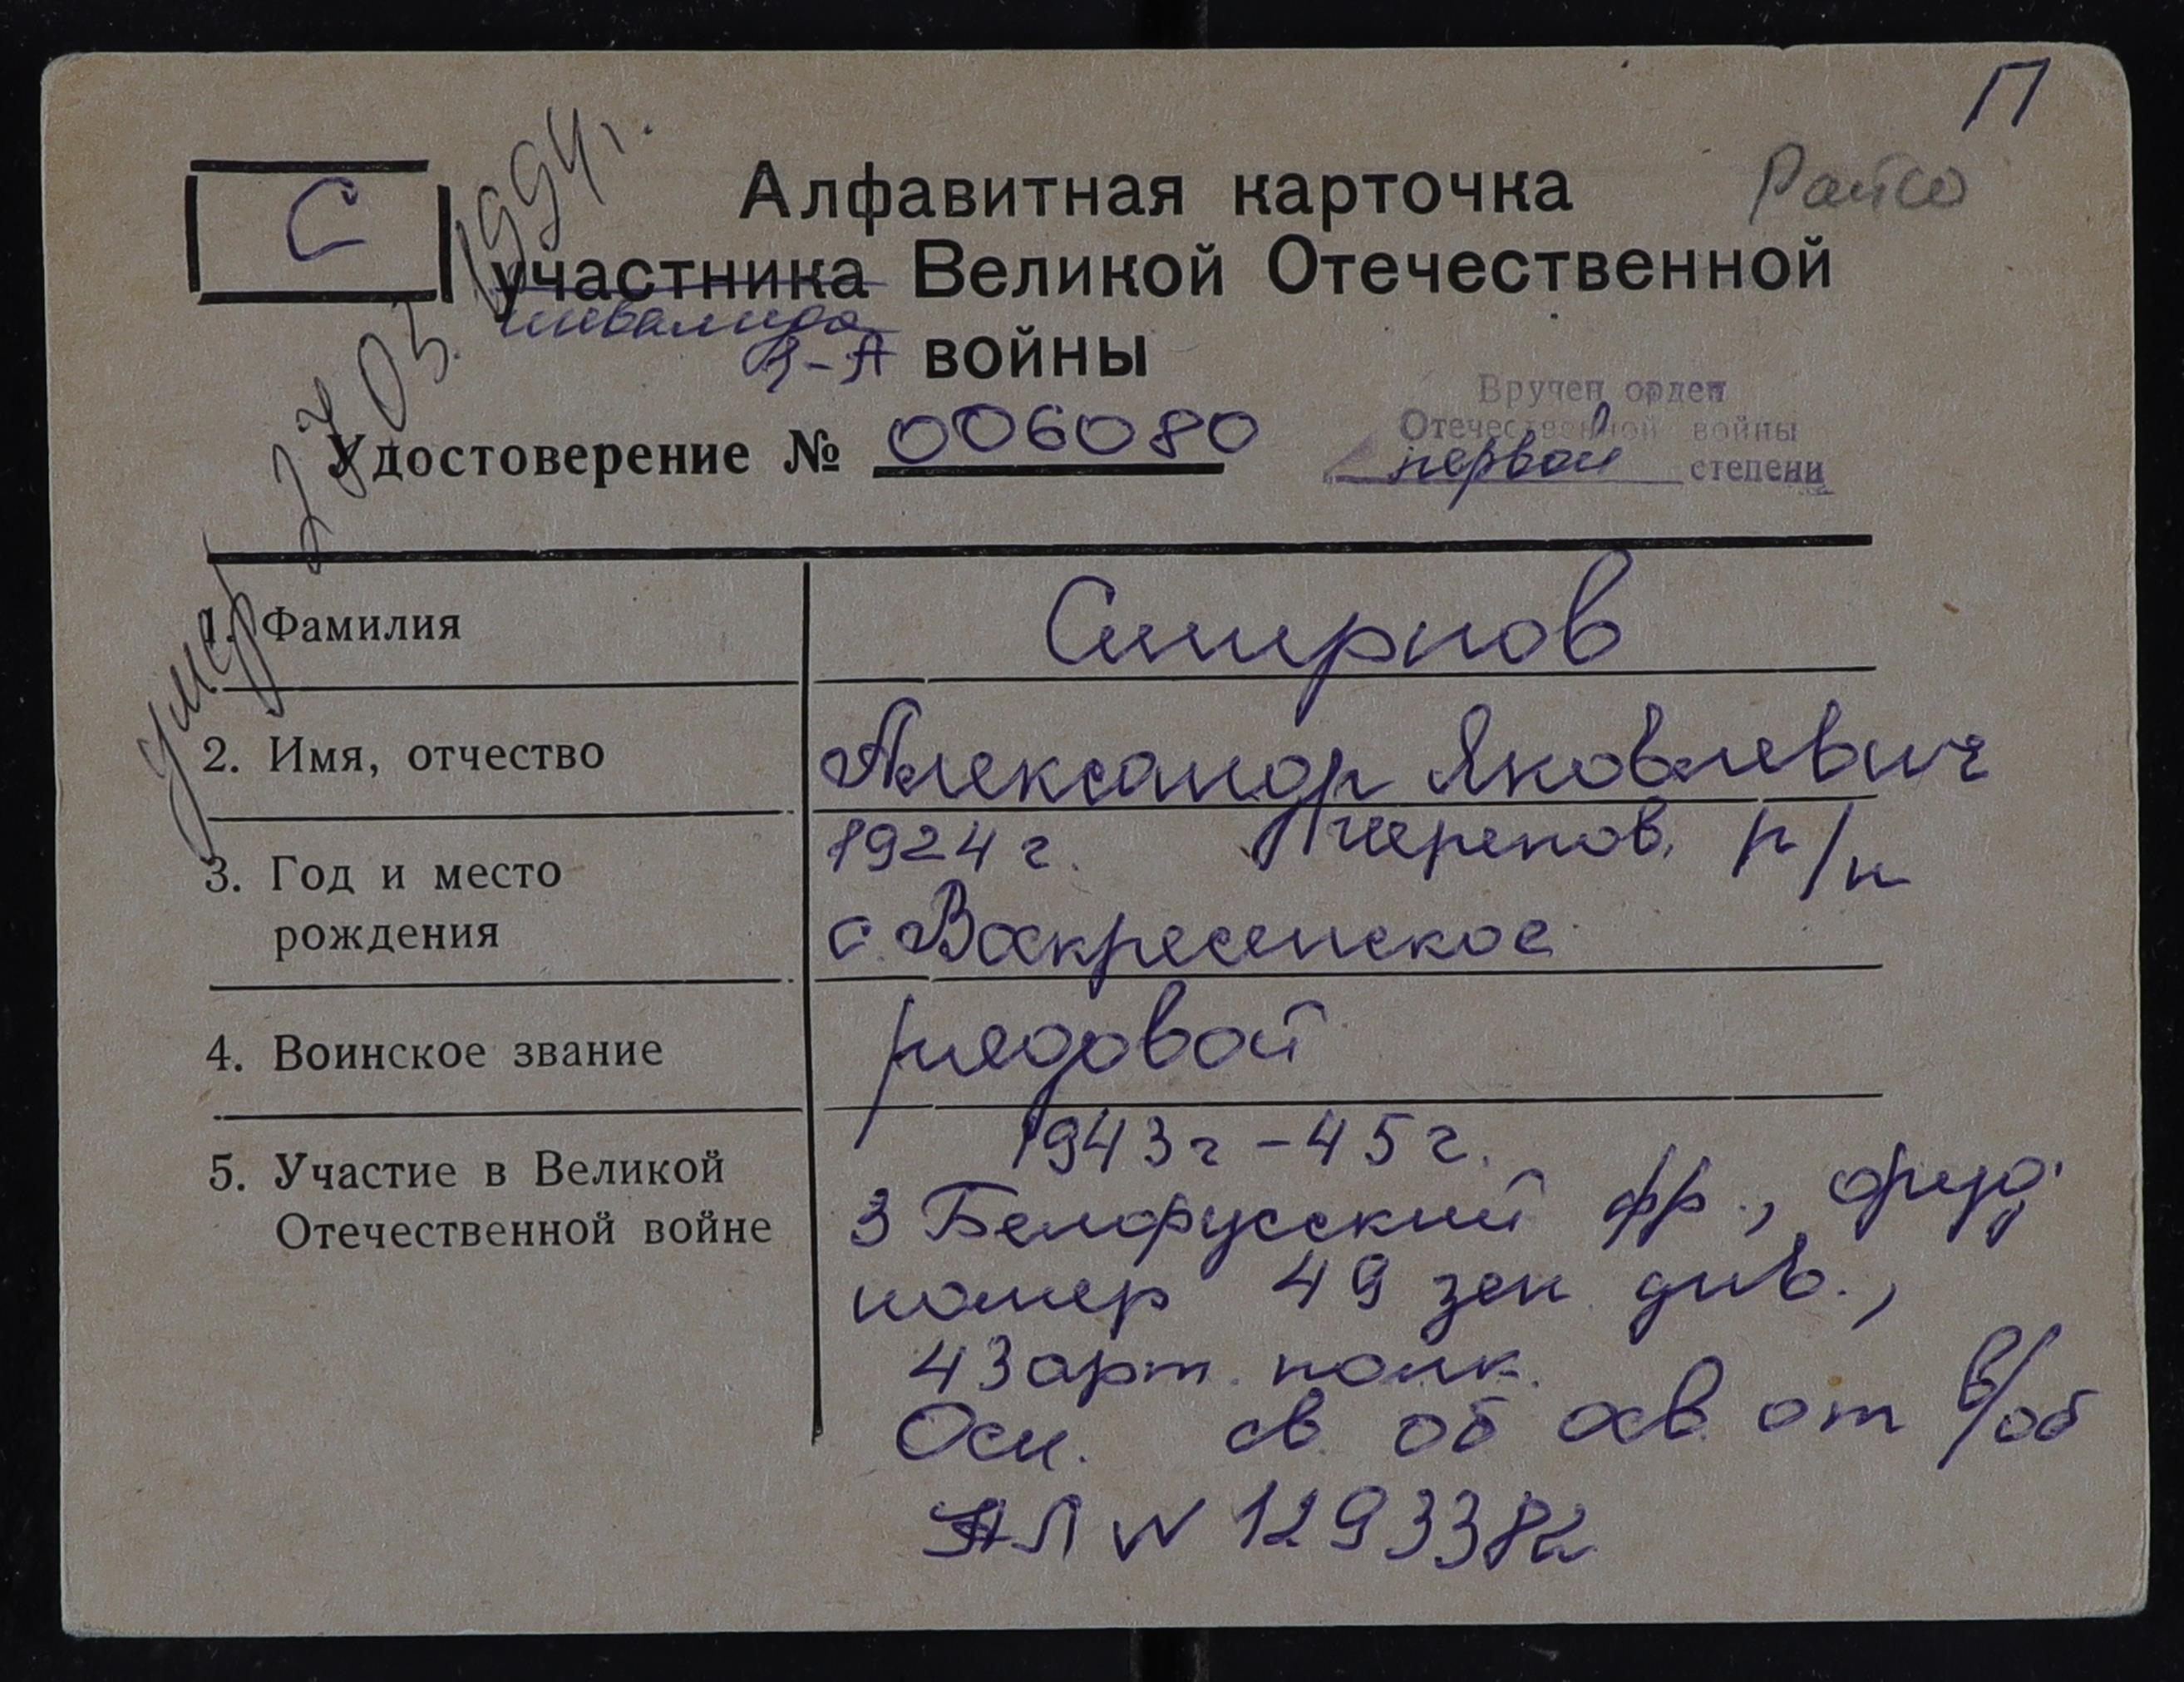 П
С
Алфавитная карточка
Райсо
участника Великой Отечественной
инвалида
войны
Вручен орден
Отечественной войны
первой степени
Удостоверение № 006080
умер 27 05. 1994г.
1. Фамилия
Смирнов
2. Имя, отчество
Александр Яковлевич
3. Год и место
рождения
1924 г. Черепов. р/н
с. Воскресенское
4. Воинское звание
рядовой
5. Участие в Великой
Отечественной войне
1943г - 45г.
3 Белорусский фр., оруд.
номер 49 зен. див.,
43 арт. полк.
Осн. св. об осв. от в/об
АЛ N 1293382